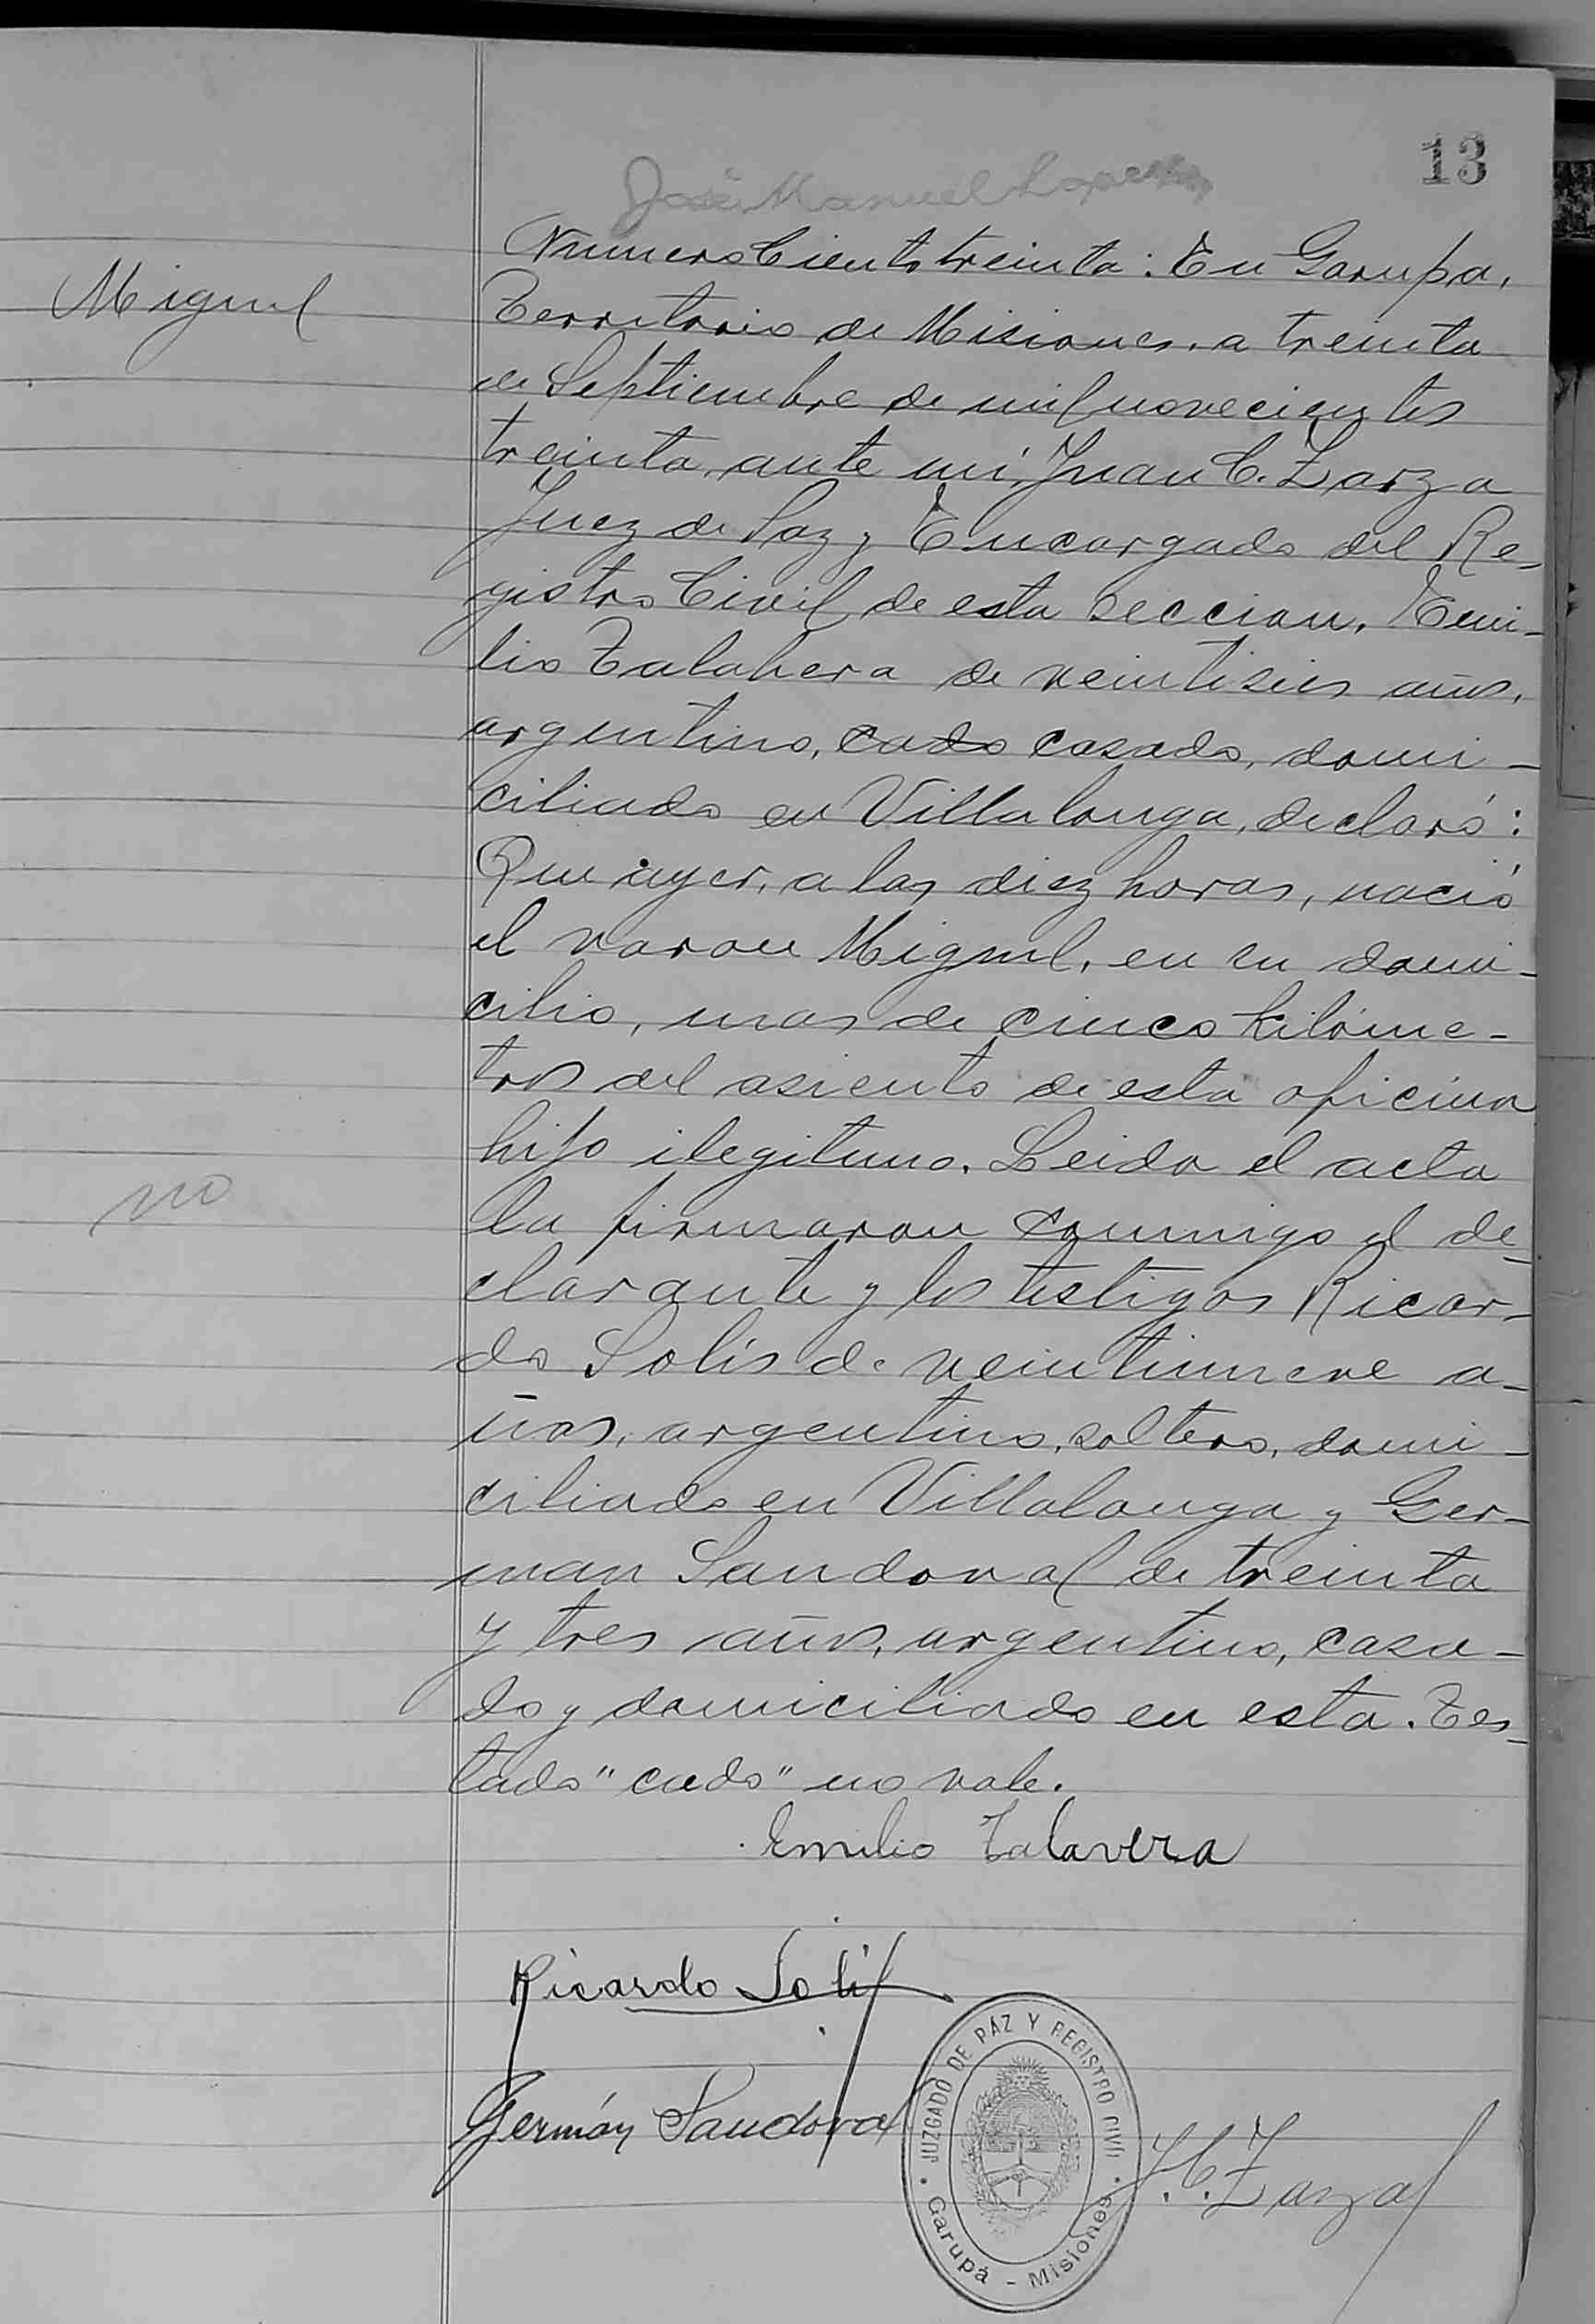 13
José Manuel
Numero Ciento treinta: En Garupa,
Miguel
Territorio de Misiones, a treinta
de Septiembre de mil novecientos
treinta, ante mi, Juan C. Zarza
Juez de Paz y Encargado del Re-
gistro Civil de esta seccion, Emi-
lio Talabera de veintiseis años,
argentino, cado casado, domi-
ciliado en Villalonga, declaró:
Que ayer, a las diez horas, nació
el varon Miguel, en su domi-
cilio, mas de cinco kilóme-
tros del asiento de esta oficina
hijo ilegitimo. Leida el acta
no
la firmaron conmigo el de-
clarante y los testigos Ricar-
do Solís de veintinueve a-
ños, argentino, soltero, domi-
ciliado en Villalonga y Ger-
man Sandoval de treinta
y tres años, argentino, casa-
do y domiciliado en esta. Tes-
tado "cado" no vale.
Emilio Talavera
Ricardo Solis
Germán Sandoval
J. C. Zarza
JUZGADO DE PAZ Y REGISTRO CIVIL
Garupá - Misiones